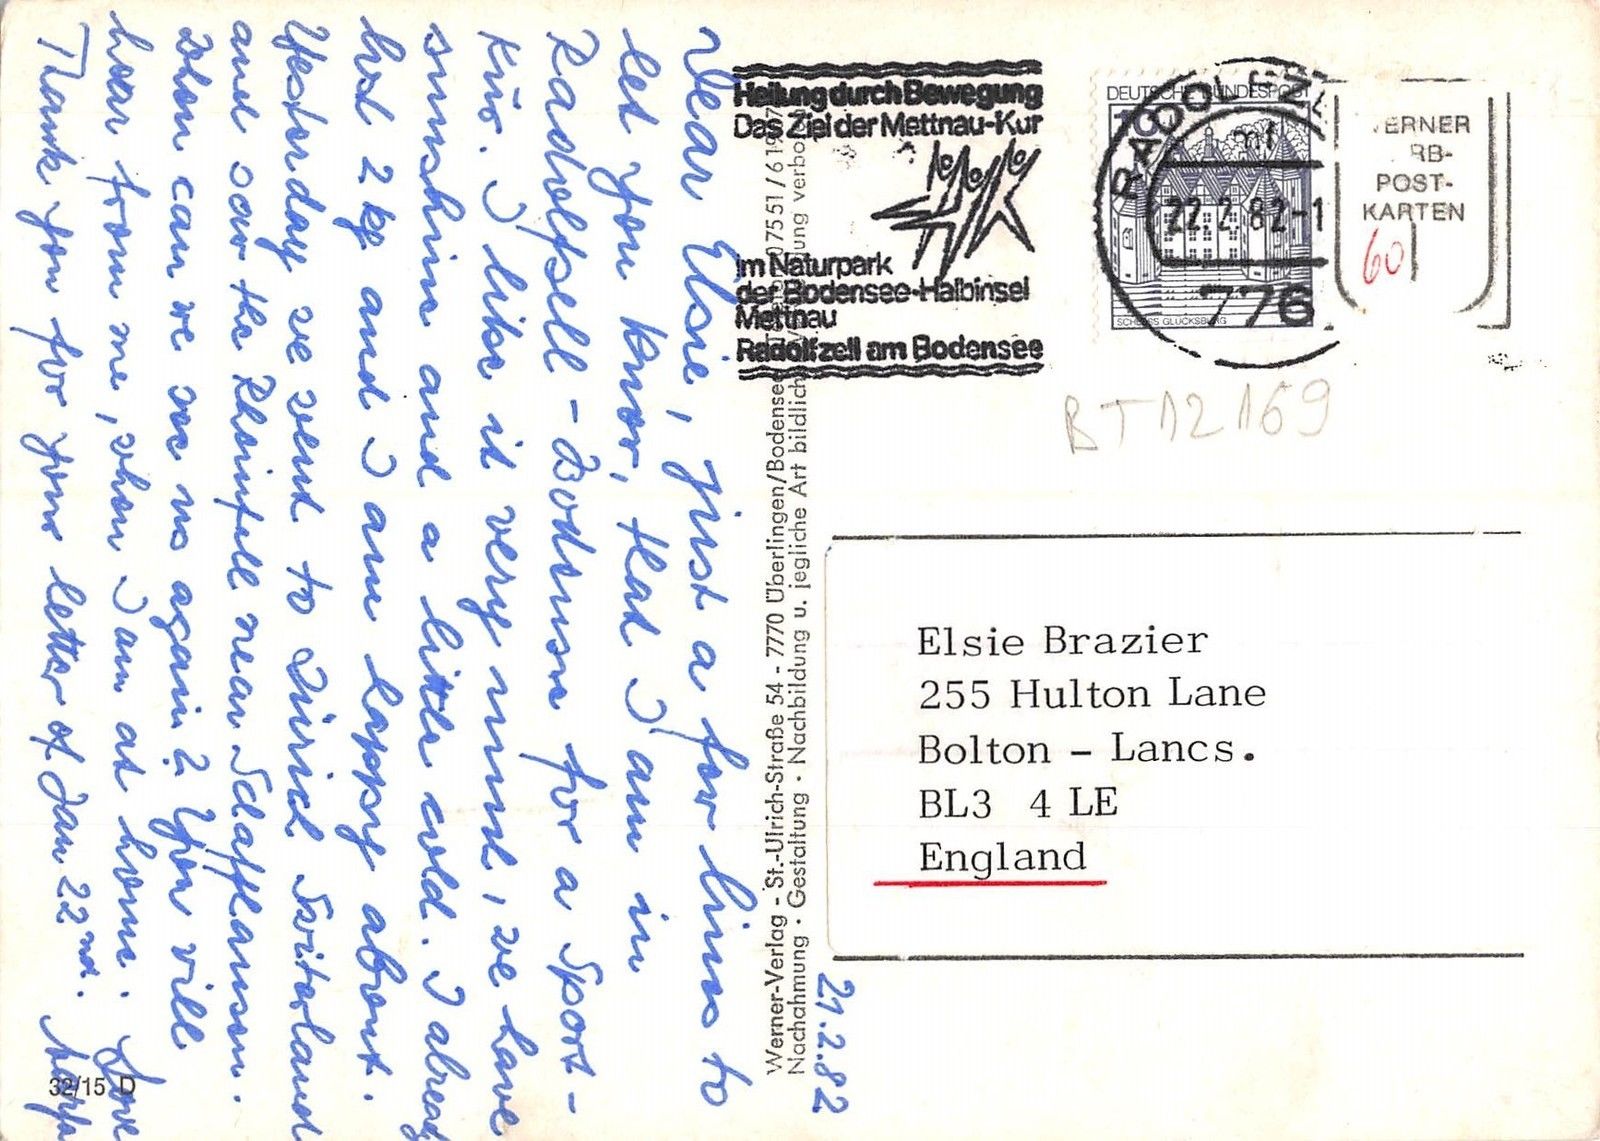 Dear Elsie, just a few lines to
let you know, that I am in
Radolfzell - Bodensee for a Sport-
Kur. I like it very much, we have
sunshine and a little cold. I already
lost 2 kg and I am happy about.
Yesterday we went to Zürich Switerland
and saw the Rheinfall near Schaffhausen.
When can we see us again? You will
hear from me, when I am at home. Love
Thank you for your letter of Jan 22nd.
21.2.82
32/15 D
Werner-Verlag - St.-Ulrich-Straße 54 - 7770 Überlingen/Bodensee 07551/6197
Nachahmung · Gestaltung · Nachbildung u. jegliche Art bildlich
Heilung durch Bewegung
Das Ziel der Mettnau-Kur
im Naturpark
der Bodensee-Halbinsel
Mettnau
Radolfzell am Bodensee
DEUTSCHE BUNDESPOST
SCHLOSS GLÜCKSBURG
22.2.82-1
776
POST-
KARTEN
60
BT12169
Elsie Brazier
255 Hulton Lane
Bolton - Lancs.
BL3 4 LE
England